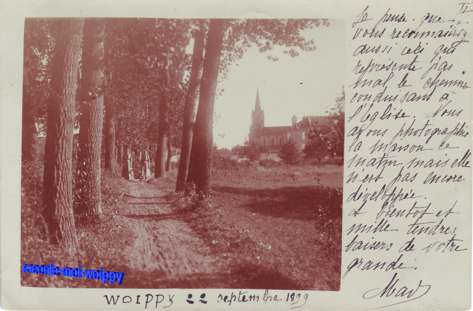 Je pense que
vous reconnaissez
aussi celà qui
représente pas
mal le chemin
conduisant à
l'église. Nous
avons photographié
la maison ce
matin, mais elle
n'est pas encore
développée.
A bientôt et
mille tendres
baisers de votre
grande.
Mad
raconte-moi woippy
WOIPPY 22 septembre 1909